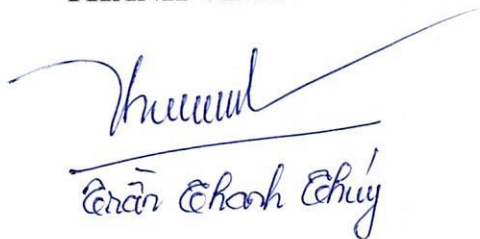 Trần Thanh Thúy